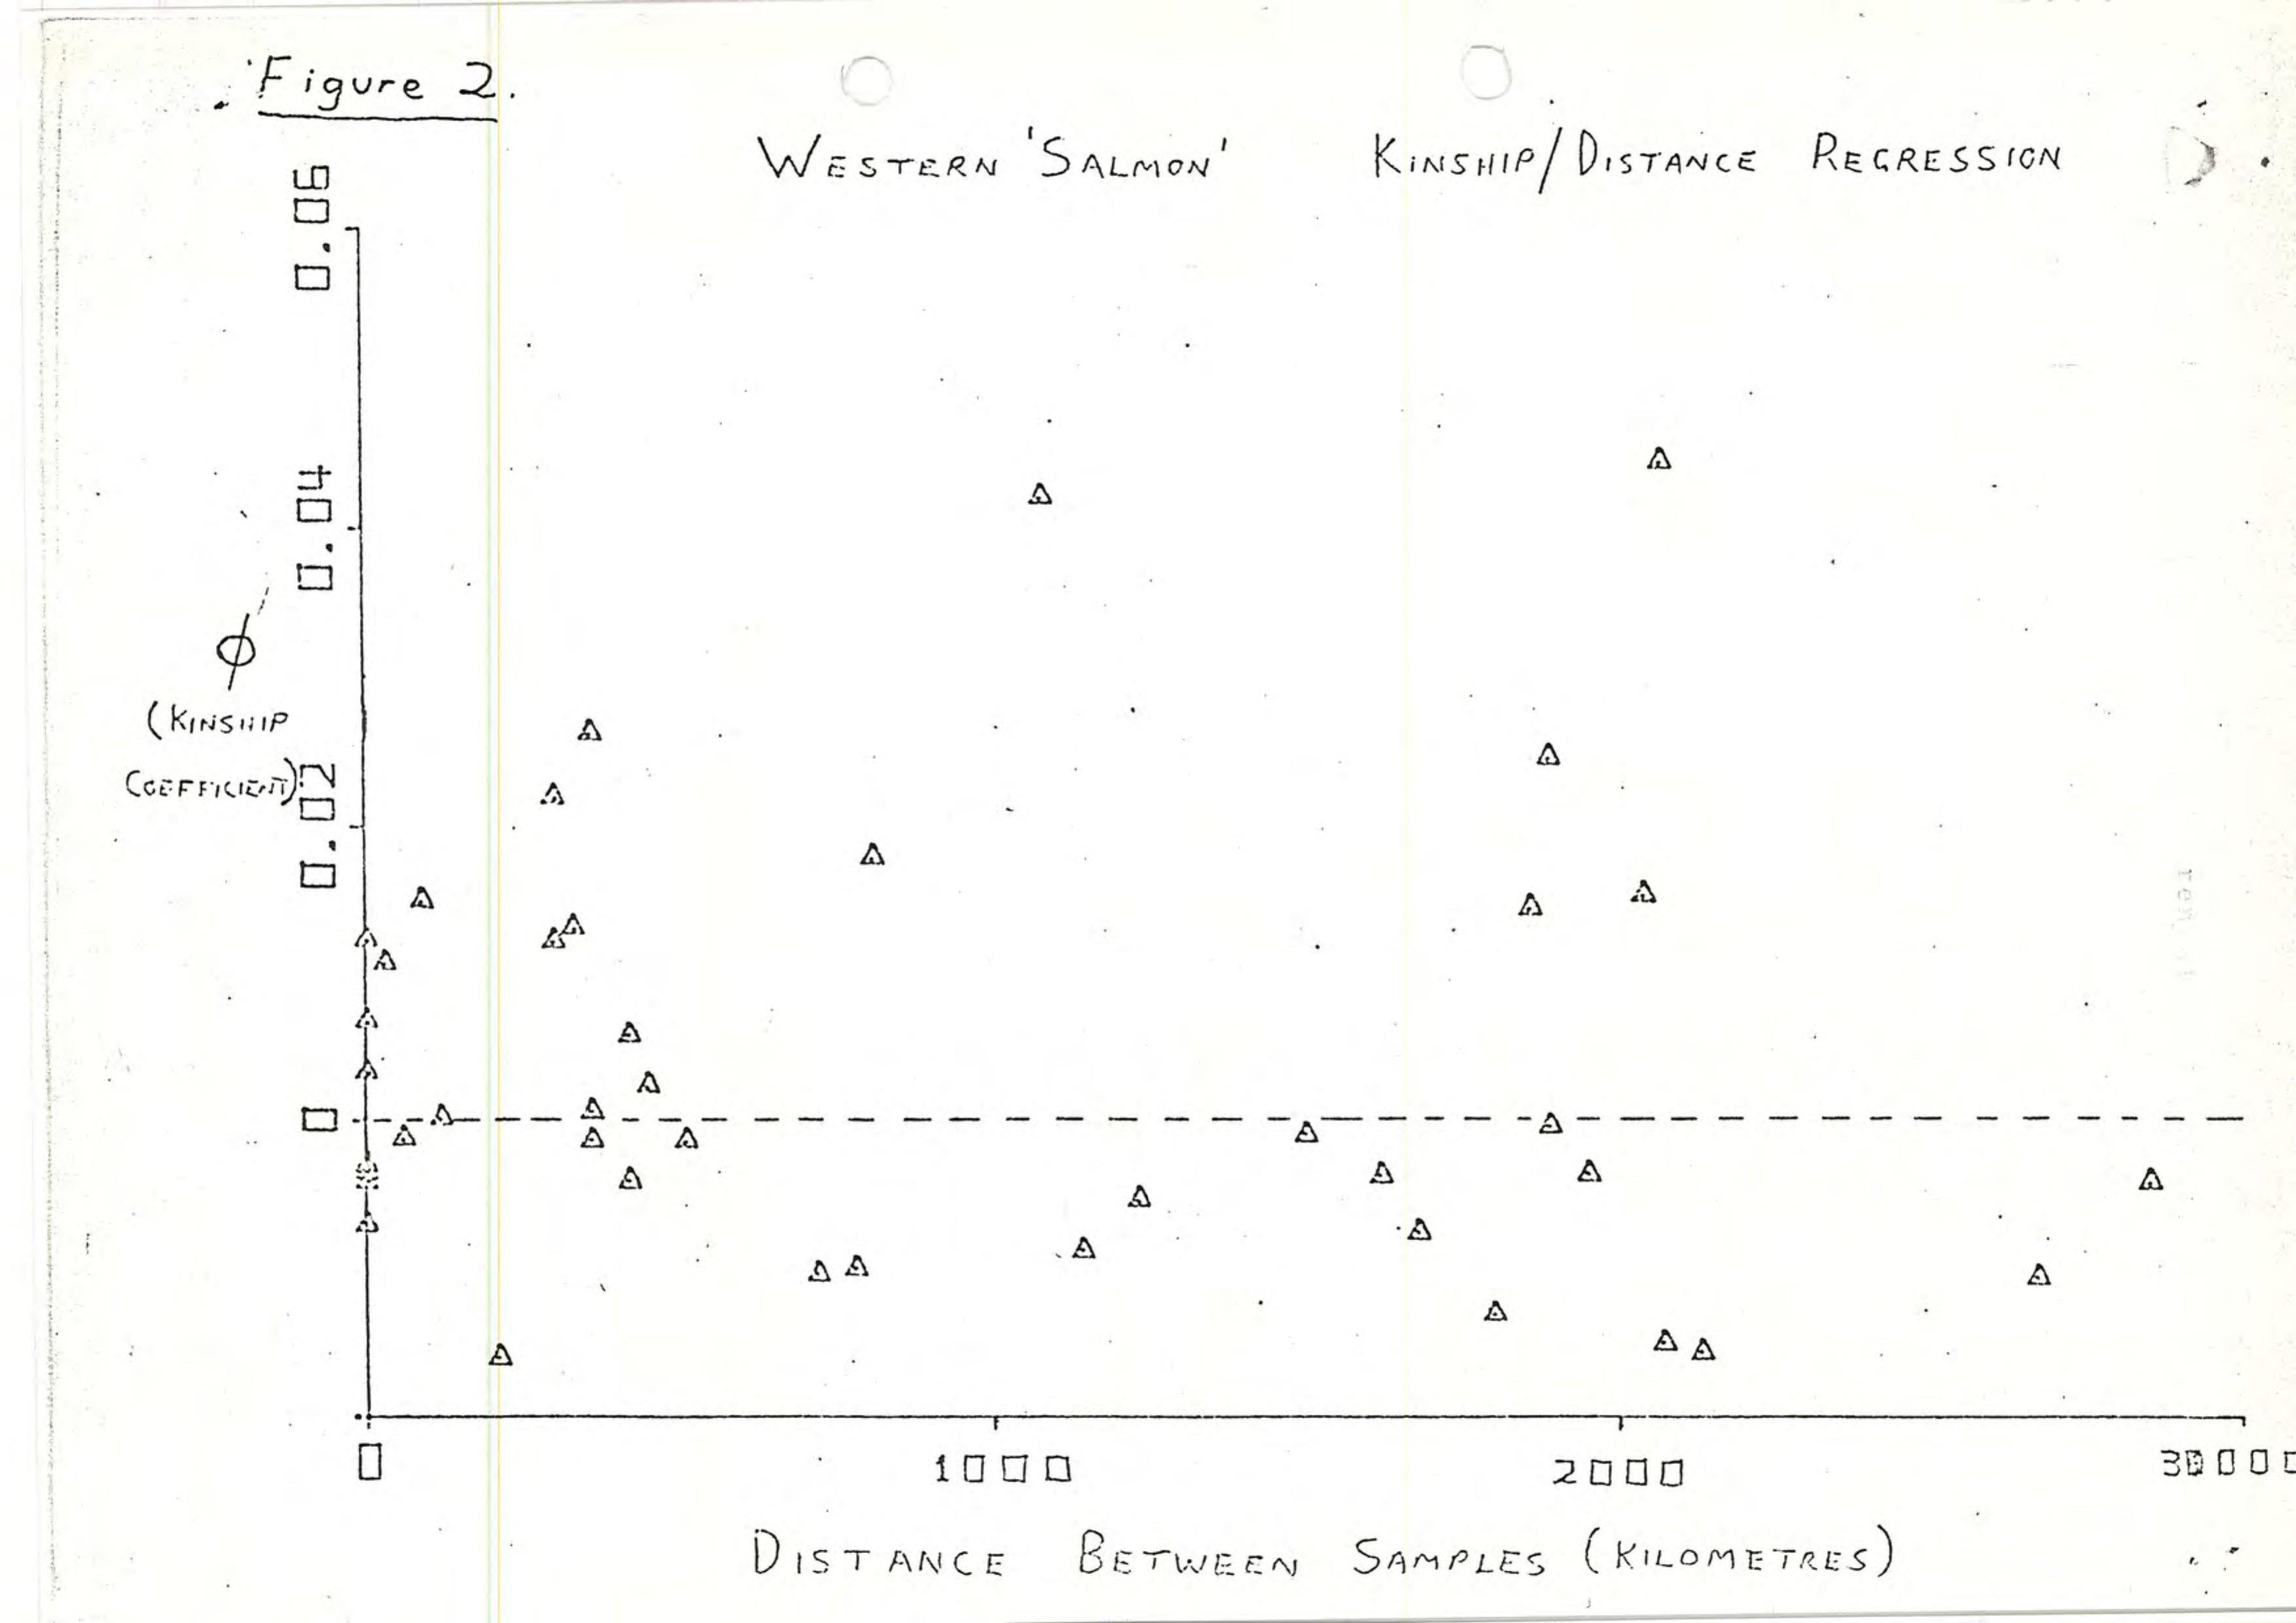 Figure 2.
WESTERN 'SALMON' KINSHIP/DISTANCE REGRESSION
0.06
0.04
ϕ
(KINSHIP
COEFFICIENT)
0.02
0
0 1000 2000 3000
DISTANCE BETWEEN SAMPLES (KILOMETRES)